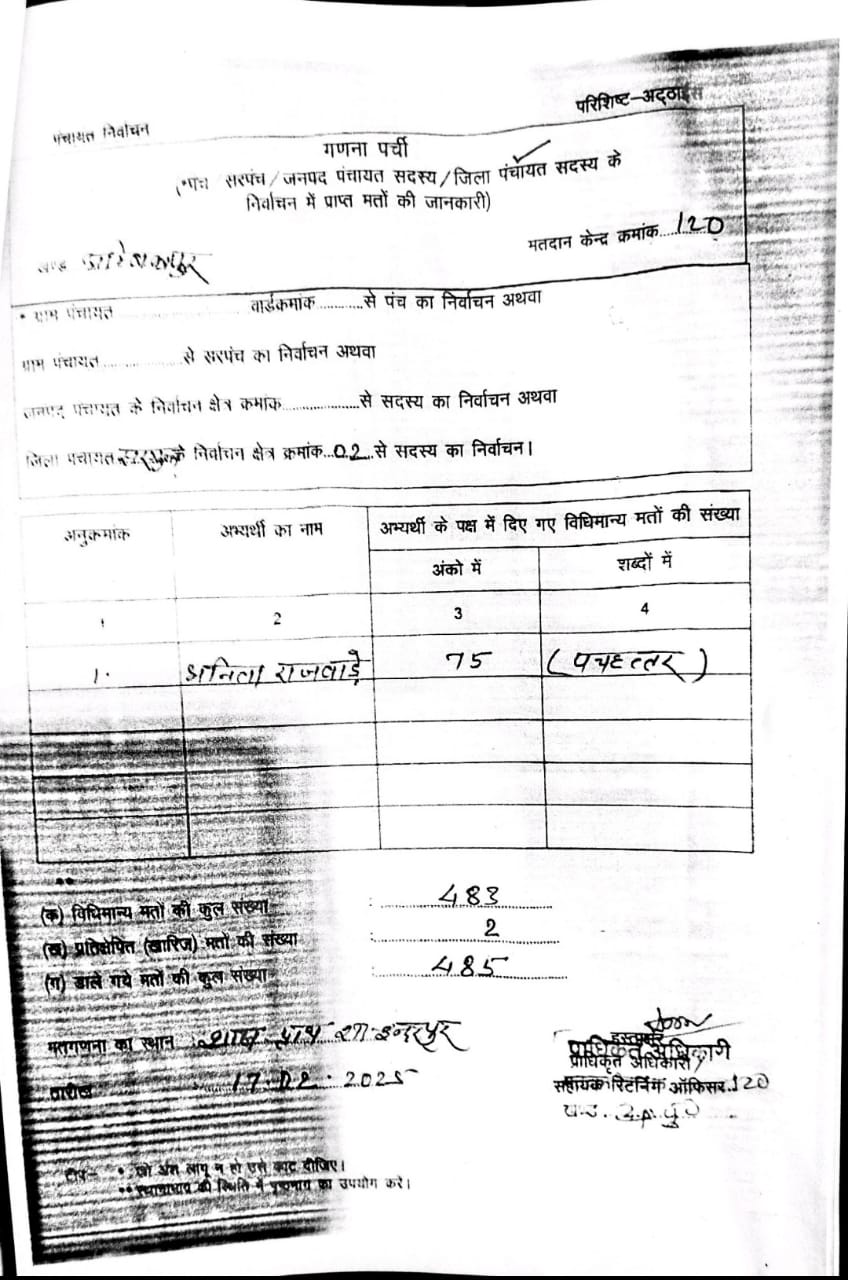 परिशिष्ट-अट्ठाईस
पंचायत निर्वाचन
गणना पर्ची
(*पंच / सरपंच / जनपद पंचायत सदस्य / जिला पंचायत सदस्य के
निर्वाचन में प्राप्त मतों की जानकारी)
मतदान केन्द्र कमांक....120
खण्ड
* ग्राम पंचायत वार्डकमांक............से पंच का निर्वाचन अथवा
ग्राम पंचायत..................से सरपंच का निर्वाचन अथवा
जनपद पंचायत के निर्वाचन क्षेत्र कमांक...................से सदस्य का निर्वाचन अथवा
जिला पंचायत के निर्वाचन क्षेत्र क्रमांक...02..से सदस्य का निर्वाचन।
अनुकमांक अभ्यर्थी का नाम अभ्यर्थी के पक्ष में दिए गए विधिमान्य मतों की संख्या
अंको में शब्दों में
1 2 3 4
1. अनिता राजवाड़े 75 (पचहत्तर)
**
(क) विधिमान्य मतों की कुल संख्या : 483
(ख) प्रतिक्षेपित (खारिज) मतों की संख्या : 2
(ग) डाले गये मतों की कुल संख्या : 485
मतगणना का स्थान
तारीख 17.02.2025
हस्ताक्षर
प्राधिकृत अधिकारी
प्राधिकृत अधिकारी/
सहायक रिटर्निंग ऑफिसर.120
टीप- * जो अंश लागू न हो उसे काट दीजिए।
** स्थानाभाव की स्थिति में पृष्ठभाग का उपयोग करें।